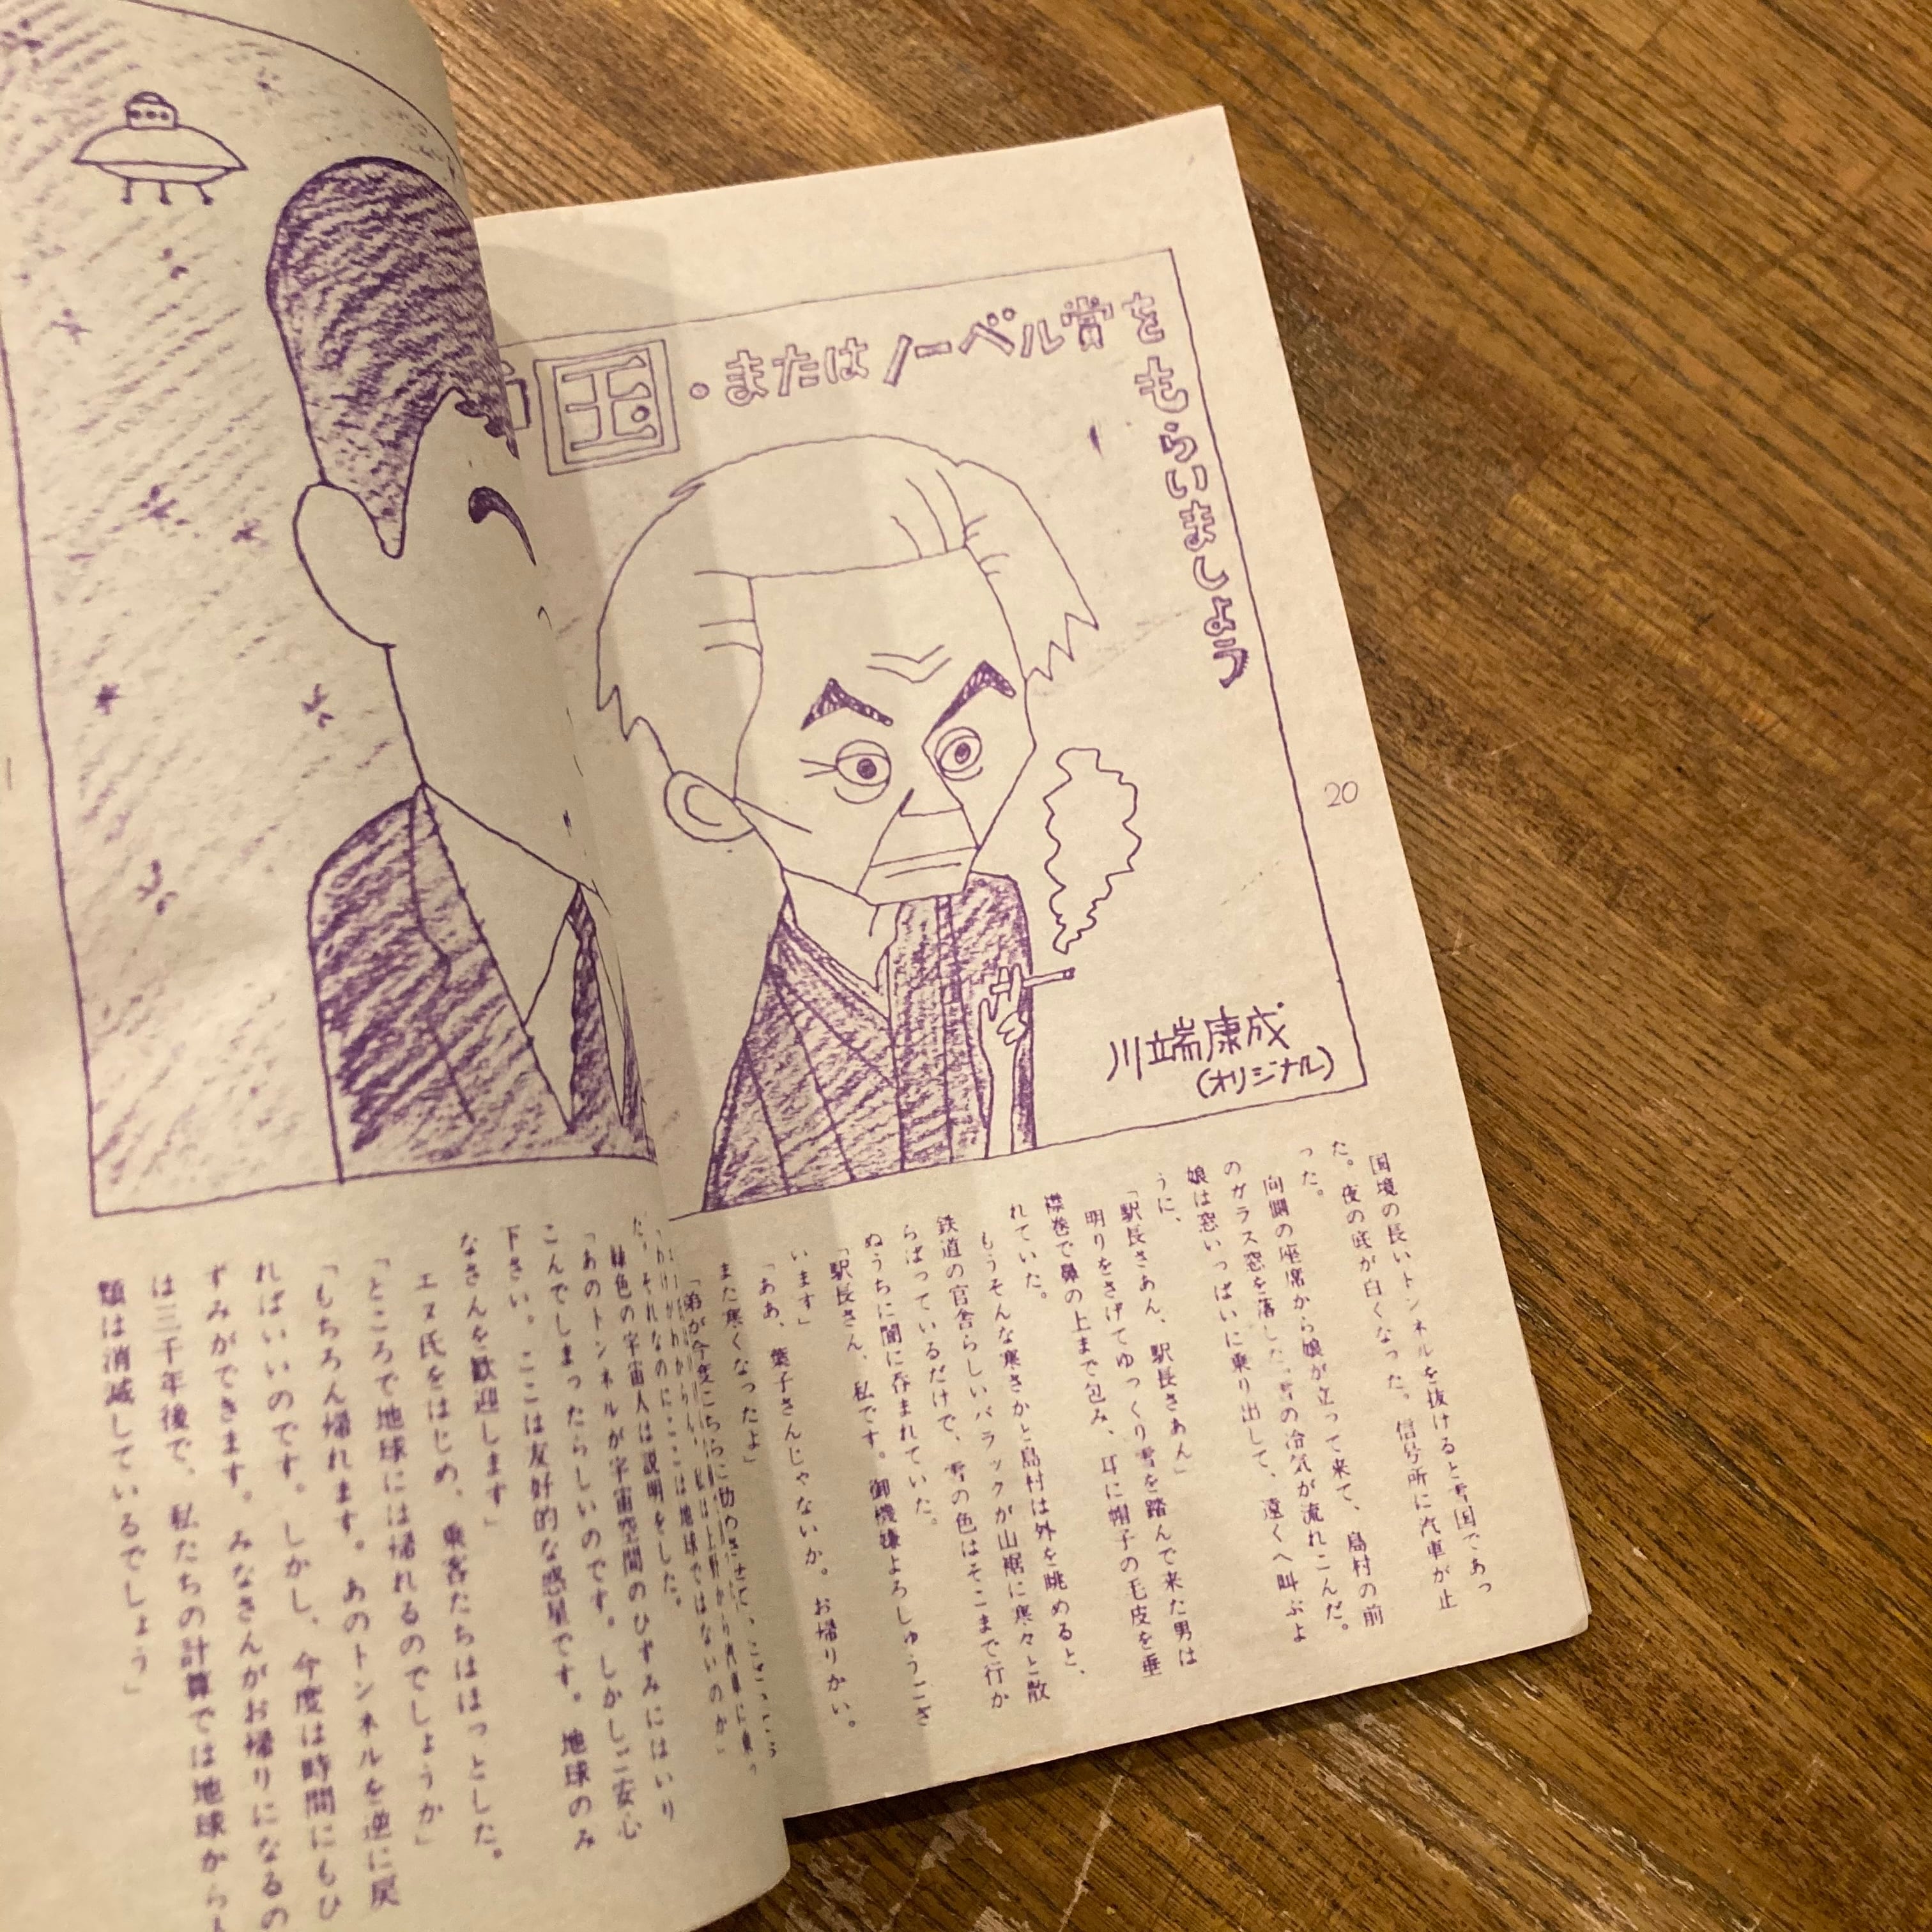 国・またはノーベル賞を
もらいましょう
川端康成
(オリジナル)
20
国境の長いトンネルを抜けると雪国であっ
た。夜の底が白くなった。信号所に汽車が止
った。
向側の座席から娘が立って来て、島村の前
のガラス窓を落した。雪の冷気が流れこんだ。
娘は窓いっぱいに乗り出して、遠くへ叫ぶよ
うに、
「駅長さあん、駅長さあん」
明りをさげてゆっくり雪を踏んで来た男は
襟巻で鼻の上まで包み、耳に帽子の毛皮を垂
れていた。
もうそんな寒さかと島村は外を眺めると、
鉄道の官舎らしいバラックが山裾に寒々と散
らばっているだけで、雪の色はそこまで行か
ぬうちに闇に呑まれていた。
「駅長さん、私です。御機嫌よろしゅうござ
います」
「ああ、葉子さんじゃないか。お帰りかい。
また寒くなったよ」
「弟が今度こちらに
た。それなのにここは地球ではないのか」
緑色の宇宙人は説明をした。
「あのトンネルが宇宙空間のひずみにはいり
こんでしまったらしいのです。しかしご安心
下さい。ここは友好的な惑星です。地球のみ
なさんを歓迎します」
エヌ氏をはじめ、乗客たちはほっとした。
「ところで地球には帰れるのでしょうか」
「もちろん帰れます。あのトンネルを逆に戻
ればいいのです。しかし、今度は時間にもひ
ずみができます。みなさんがお帰りになるの
は三千年後で、私たちの計算では地球から人
類は消滅しているでしょう」